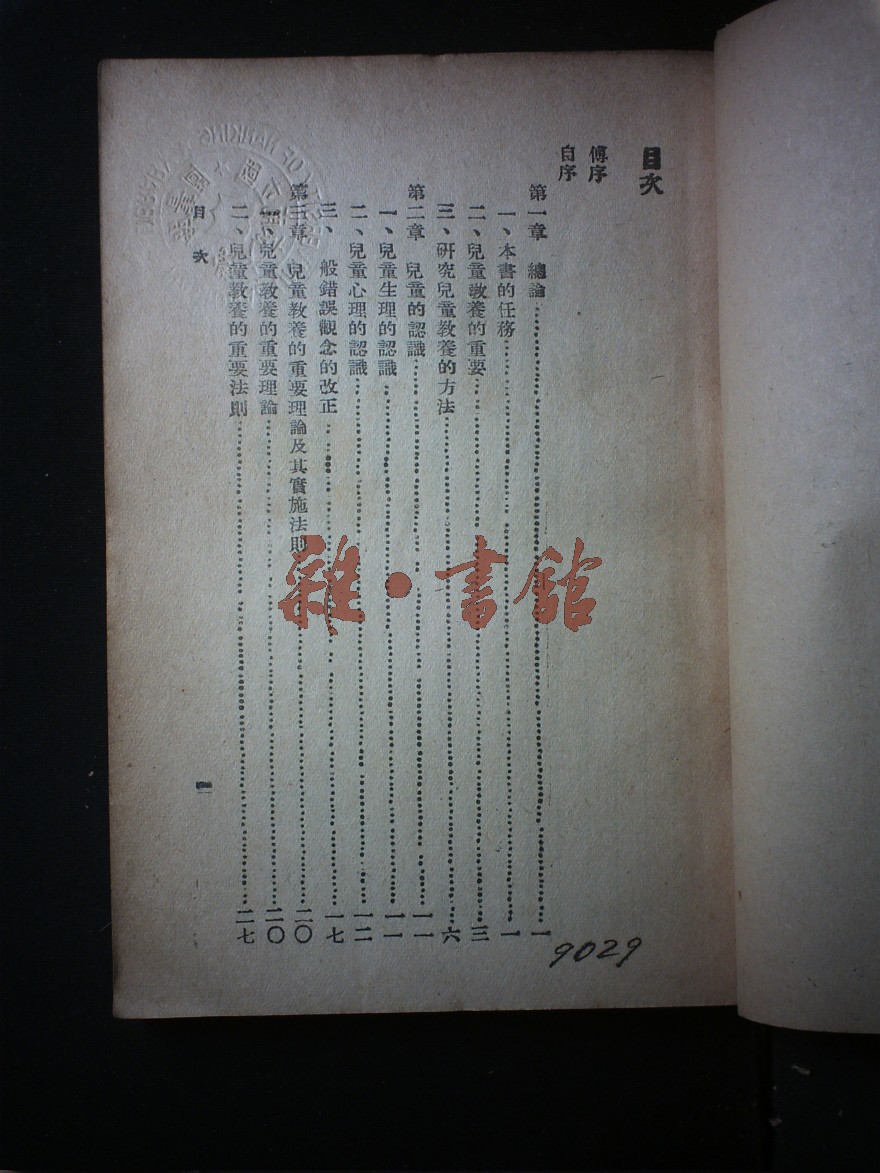 目次
傅序
自序
第一章 總論……一
一、本書的任務……一
二、兒童教養的重要……三
三、研究兒童教養的方法……六
第二章 兒童的認識……一一
一、兒童生理的認識……一一
二、兒童心理的認識……一二
三、一般錯誤觀念的改正……一七
第三章 兒童教養的重要理論及其實施法則……二〇
一、兒童教養的重要理論……二〇
二、兒童教養的重要法則……二七
目次
一
9029
雜·書館